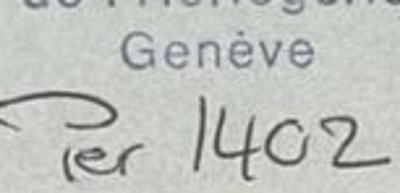 Genève
Per 1402